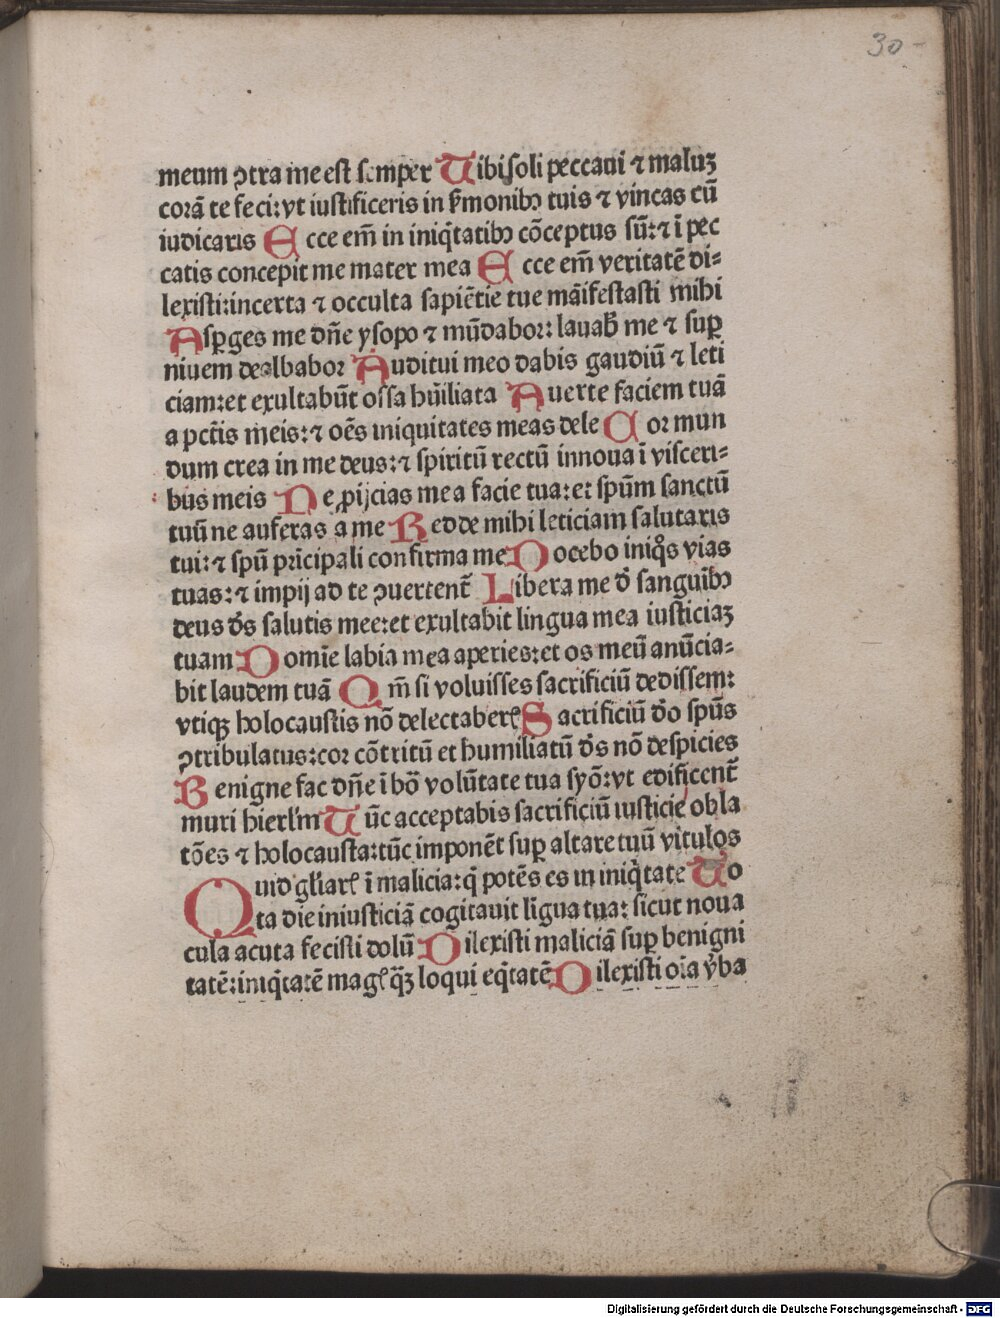 30
meum ꝯtra me est semper Tibi soli peccaui ⁊ maluʒ
corã te feci:vt iustificeris in ẜmonibꝯ tuis ⁊ vincas cũ
iudicaris Ecce em̃ in iniq̃tatibꝯ cõceptus sũ:⁊ ĩ pec
catis concepit me mater mea Ecce em̃ veritatẽ di⸗
lexisti:incerta ⁊ occulta sapiẽtie tue mãifestasti mihi
Asꝑges me dñe ysopo ⁊ mũdabor: lauab̃ me ⁊ suꝑ
niuem dealbabor Auditui meo dabis gaudiũ ⁊ leti
ciam:et exultabũt ossa hũiliata Auerte faciem tuã
a pctĩs meis:⁊ oẽs iniquitates meas dele Cor mun
dum crea in me deus:⁊ spiritũ rectũ innoua ĩ visceri⸗
bus meis Ne ꝓijcias me a facie tua:et spũm sanctũ
tuũ ne auferas a me Redde mihi leticiam salutaris
tui:⁊ spũ prĩcipali confirma me Docebo iniq̊s vias
tuas:⁊ impij ad te ꝯuertent̃ Libera me d̃ sanguĩbꝯ
deus d̃s salutis mee:et exultabit lingua mea iusticiaʒ
tuam Domĩe labia mea aperies:et os meũ anũcia⸗
bit laudem tuã Qm̃ si voluisses sacrificiũ dedissem:
vtiqʒ holocaustis nõ delectaberꝭ Sacrificiũ d̃o spũs
ꝯtribulatus:cor cõtritũ et humiliatũ d̃s nõ despicies
Benigne fac dñe ĩ bõ volũtate tua syõ:vt edificent̃
muri hierl̃m Tũc acceptabis sacrificiũ iusticie obla
tões ⁊ holocausta:tũc imponẽt suꝑ altare tuũ vitulos
Quid gl̃iarꝭ ĩ malicia:q̃ potẽs es in iniq̃tate To
ta die iniusticiã cogitauit lĩgua tua: sicut noua
cula acuta fecisti dolũ Dilexisti maliciã suꝑ benigni
tatẽ:iniq̃tatẽ magꝭ q̃ʒ loqui eq̃tatẽ Dilexisti oĩa ṽba
Digitalisierung gefördert durch die Deutsche Forschungsgemeinschaft - DFG